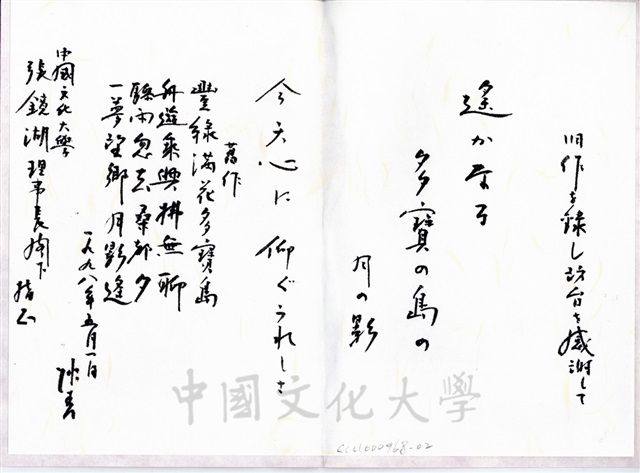 旧作を録し訪台を感謝して
遙かなる
多寶の島の
月の影
今天心に仰ぐうれしさ
舊作
豐綠滿花多寶島
舟遊乘興排無聊
聽雨忽忘桑都夕
一夢望鄉月影逢
一九九八年五月一日
中國文化大學
張鏡湖理事長閣下
指正
中國文化大學
CCU000968-02